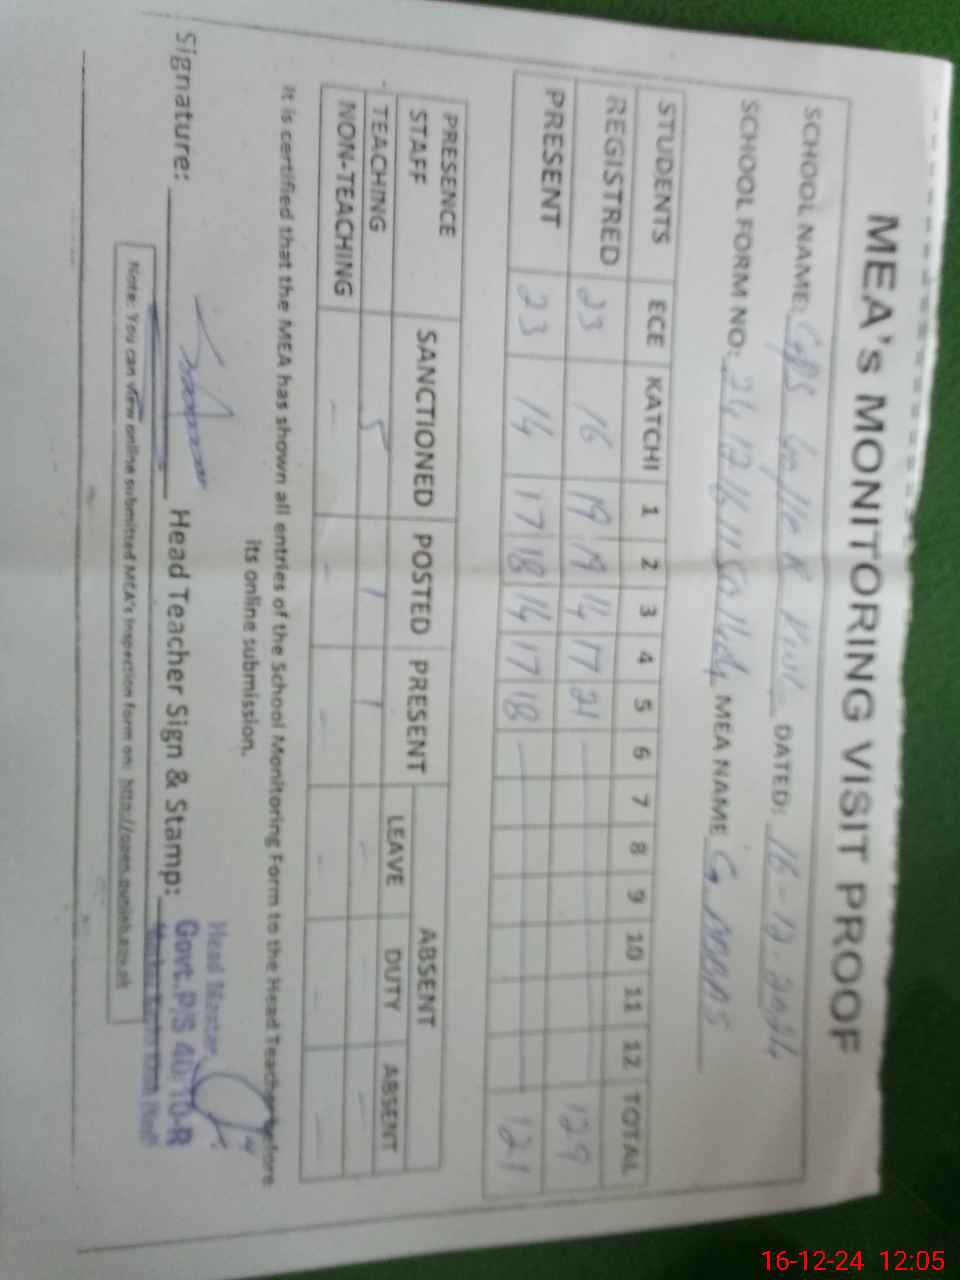 MEA's MONITORING VISIT PROOF
SCHOOL NAME: GPS 40/10 R DATED: 16-12-2024
SCHOOL FORM NO: MEA NAME G. ABBAS
STUDENTS ECE KATCHI 1 2 3 4 5 6 7 8 9 10 11 12 TOTAL
REGISTRED 23 16 19 19 14 17 21 129
PRESENT 23 14 17 18 14 17 18 121
PRESENCE STAFF SANCTIONED POSTED PRESENT ABSENT
LEAVE DUTY ABSENT
TEACHING 5 1 1 - - -
NON-TEACHING - - - - - -
It is certified that the MEA has shown all entries of the School Monitoring Form to the Head Teacher before
its online submission.
Signature: Head Teacher Sign & Stamp:
Head Master
Govt. P/S 40/10-R
Note: You can view online submitted MEA's inspection form on: http://open.punjab.gov.pk
16-12-24 12:05